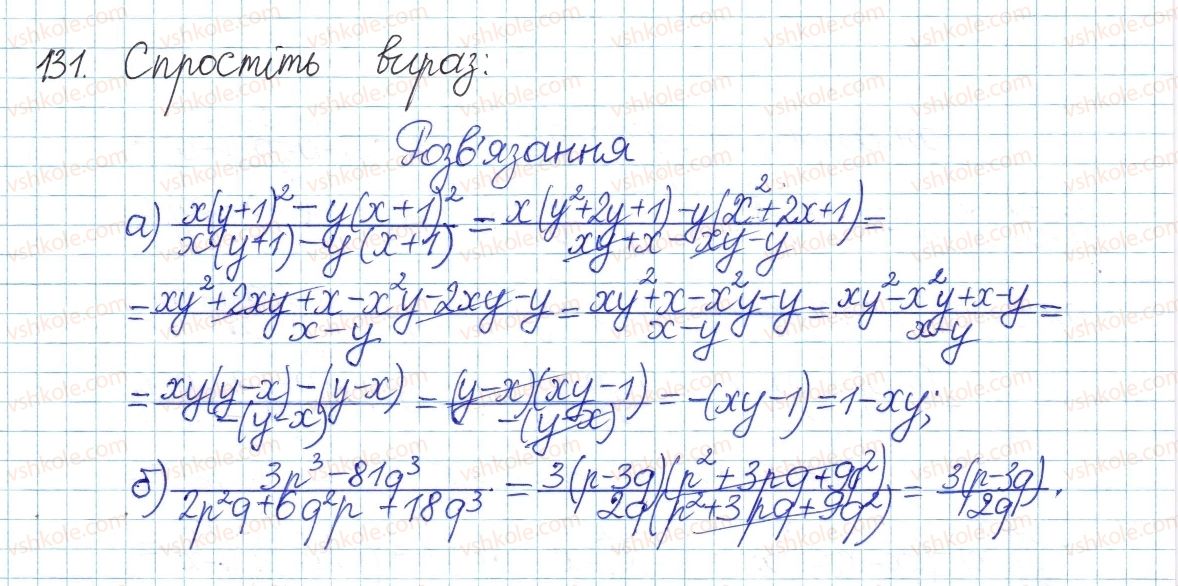 131. Спростіть вираз:
Розв'язання
а) (x(y+1)²-y(x+1)²)/(x(y+1)-y(x+1)) = (x(y²+2y+1)-y(x²+2x+1))/(xy+x-xy-y) =
= (xy²+2xy+x-x²y-2xy-y)/(x-y) = (xy²+x-x²y-y)/(x-y) = (xy²-x²y+x-y)/(x-y) =
= (xy(y-x)-(y-x))/(-(y-x)) = ((y-x)(xy-1))/(-(y-x)) = -(xy-1) = 1-xy;
б) (3p³-81q³)/(2p²q+6q²p+18q³) = (3(p-3q)(p²+3pq+9q²))/(2q(p²+3pq+9q²)) = (3(p-3q))/(2q).